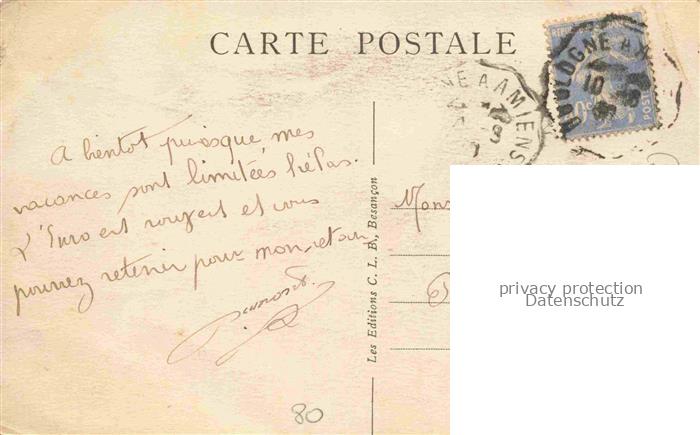 CARTE POSTALE
BOULOGNE A
10
E A AMIENS
A bientot puisque, mes
vacances sont limitées hélas.
L'Euro est ouvert et vous
pourrez retenir pour mon retour
Les Editions C. L. B., Besançon
Mons
privacy protection
Datenschutz
POSTES
80